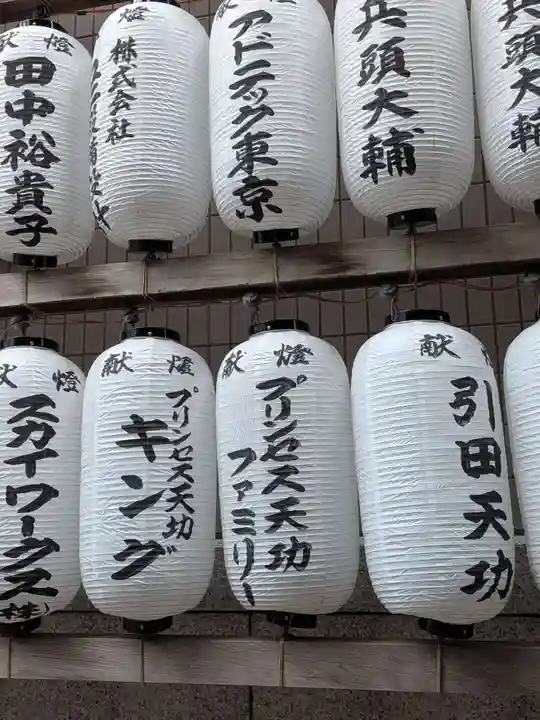 献燈
田中裕貴子
献燈
株式会社
献燈
アドニテック東京
兵頭大輔
兵頭大輔
献燈
スカイワークス(株)
献燈
プリンセス天功
キング
献燈
プリンセス天功
ファミリー
献燈
引田天功